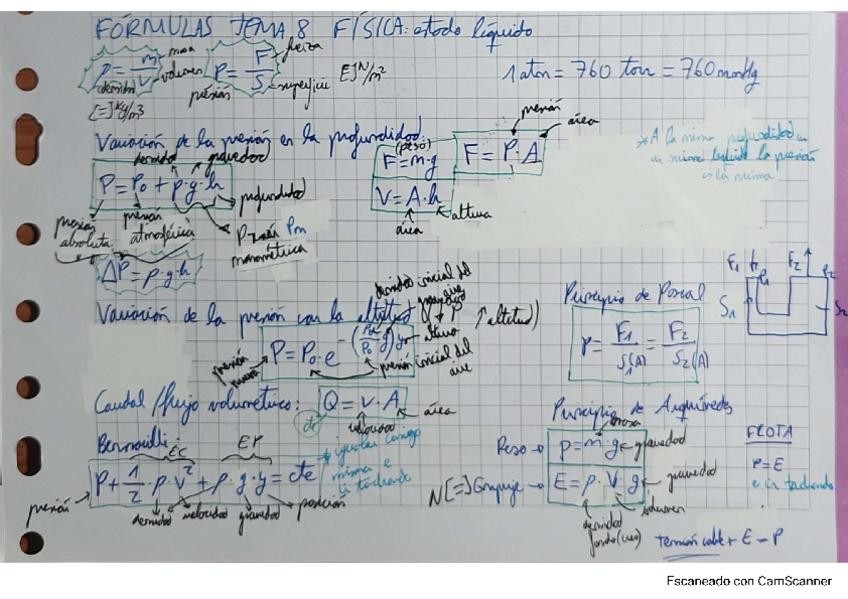 FÓRMULAS TEMA 8 FÍSICA: estado líquido
ρ = m/V masa volumen densidad [=] kg/m³
P = F/S fuerza superficie presión [=] N/m²
1 atm = 760 torr = 760 mmHg
Variación de la presión en la profundidad:
P = P₀ + ρ·g·h
densidad gravedad profundidad
presión absoluta presión atmosférica Pm manométrica
ΔP = ρ·g·h
(peso)
F = m·g
F = P·A presión área
V = A·h área altura
* A la misma profundidad en
un mismo líquido la presión
es la misma
Variación de la presión con la altitud
↑ altitud)
P = P₀·e^-(ρ₀/P₀ g)y
densidad inicial del aire gravedad altura
presión presión inicial del aire
Principio de Pascal
P = F₁/S₁(A) = F₂/S₂(A)
F₁ F₂
S₁ S₂
Caudal/flujo volumétrico: Q = v·A
cte velocidad área
Bernouilli:
EC EP
P + 1/2·ρ·v² + ρ·g·y = cte
presión densidad velocidad gravedad posición
Principio de Arquímedes
masa
Peso → p = m·g gravedad
N [=] Empuje → E = ρ·V·g gravedad
densidad volumen
FLOTA
P = E
Tensión cable + E = P
Escaneado con CamScanner